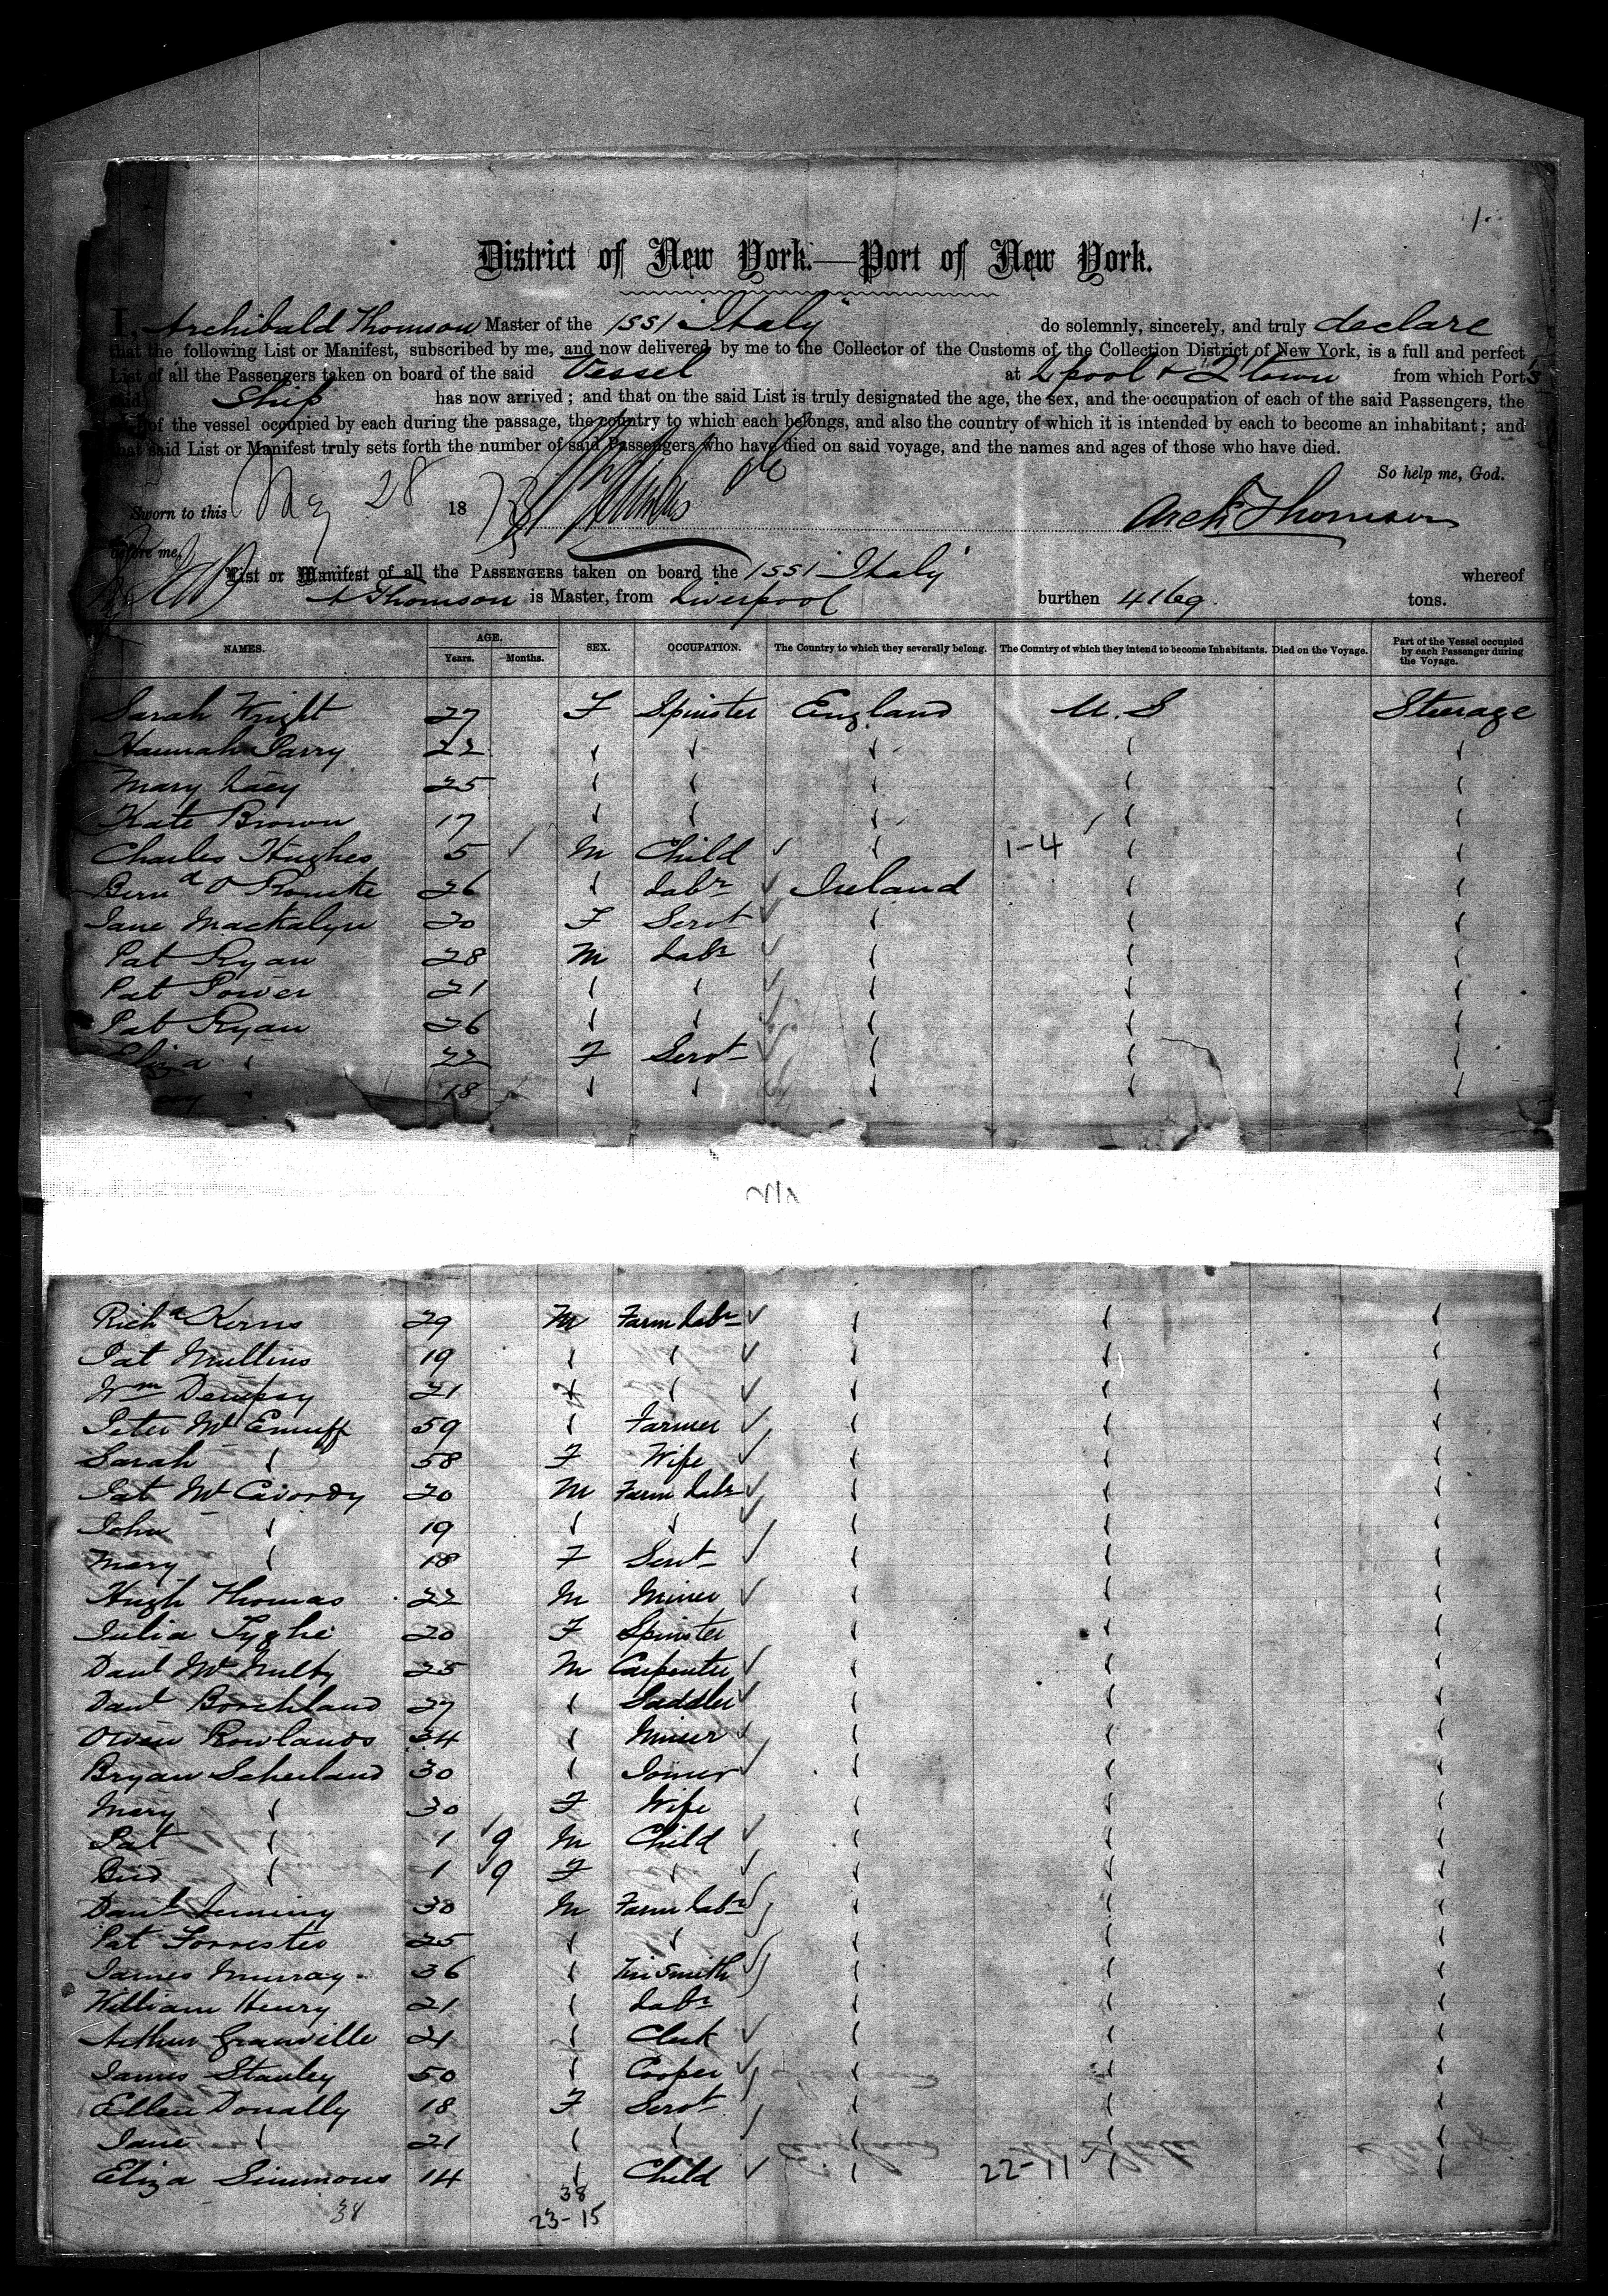 1.
District of New York.—Port of New York.
I, Archibald Thomson Master of the "Italy" do solemnly, sincerely, and truly declare
that the following List or Manifest, subscribed by me, and now delivered by me to the Collector of the Customs of the Collection District of New York, is a full and perfect
List of all the Passengers taken on board of the said Vessel at L'pool & Q'town from which Ports
said Ship has now arrived; and that on the said List is truly designated the age, the sex, and the occupation of each of the said Passengers, the
of the vessel occupied by each during the passage, the country to which each belongs, and also the country of which it is intended by each to become an inhabitant; and
that said List or Manifest truly sets forth the number of said Passengers who have died on said voyage, and the names and ages of those who have died.
So help me, God.
Sworn to this May 28 187 Arch Thomson
before me,
List or Manifest of all the PASSENGERS taken on board the Italy whereof
A Thomson is Master, from Liverpool burthen 4169. tons.
NAMES. AGE. Years. Months. SEX. OCCUPATION. The Country to which they severally belong. The Country of which they intend to become Inhabitants. Died on the Voyage. Part of the Vessel occupied by each Passenger during the Voyage.
Sarah Wright 27 F Spinster England U.S Steerage
Hannah Parry 22
Mary Lacy 25
Kate Brown 17
Charles Hughes 5 M Child 1-4
Bernd O Rourke 26 Labr Ireland
Jane Mackalyn 20 F Servt
Pat Ryan 28 M Labr
Pat Power 21
Pat Ryan 26
Eliza 22 F Servt
18
Richd Kerns 29 M Farm Labr
Pat Mullins 19
Wm Dempsy 21
Peter McEnuff 59 Farmer
Sarah 58 F Wife
Pat McCavordy 20 M Farm Labr
John 19
Mary 18 F Servt
Hugh Thomas 22 M Miner
Julia Tyghe 20 F Spinster
Danl McNulty 25 M Carpenter
Danl Borchland 27 Saddler
Owen Rowlands 34 Miner
Bryan Scherland 30 Joiner
Mary 30 F Wife
Pat 1 9 M Child
Brid 1 9 F
Danl 30 M Farm Labr
Pat Forrester 25
James Murray 36 Tin Smith
William Henry 21 Labr
Arthur Granville 21 Clerk
James Stanley 50 Cooper
Ellen Donally 18 F Servt
Jane 21
Eliza Simmons 14 Child 22-11
38 38
23-15